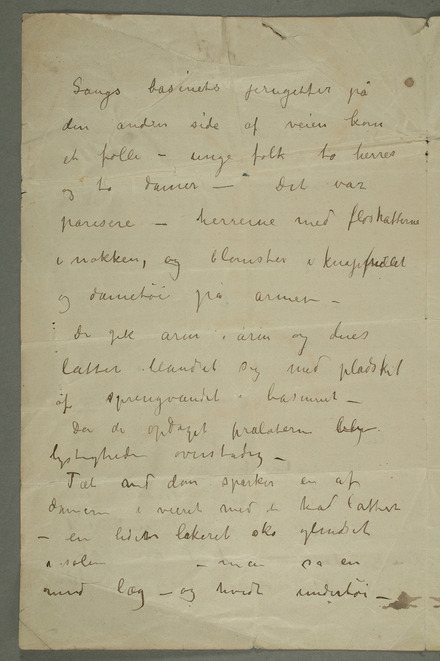 Langs basinets jerngitter på
den anden side af veien kom
et følle – unge folk to herrer
og to damer – Det var
parisere – herrerne med floshattene
i nakken, og blomster i knaphullet
og dametøi på armen –
De gik arm i arm og deres
latter blandet sig med pladsket
af springvandet i basinnet –
Da de opdaget prælaterne blev
lystigheden overstadig –
Tæt ved dem sparker en af
damerne i veiret med
– en liden lakeret sko glindset
i solen – man så en
rund læg – og hvidt undertøi –